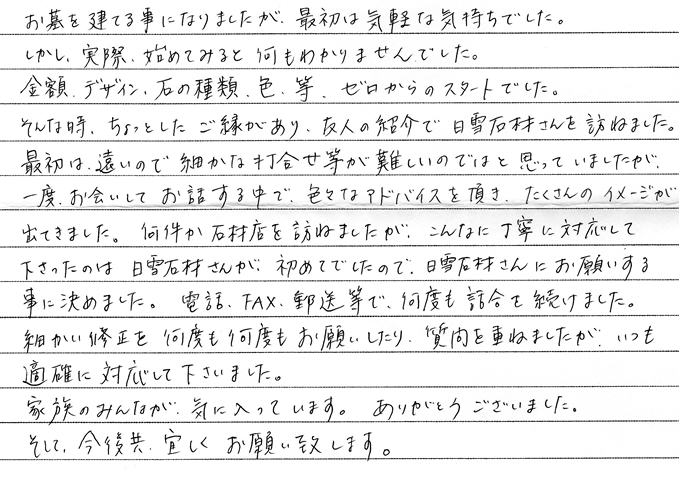 お墓を建てる事になりましたが、最初は気軽な気持ちでした。
しかし、実際、始めてみると何もわかりませんでした。
金額、デザイン、石の種類、色、等、ゼロからのスタートでした。
そんな時、ちょっとしたご縁があり、友人の紹介で白雪石材さんを訪ねました。
最初は、遠いので細かな打合せ等が難しいのではと思っていましたが、
一度、お会いしてお話する中で、色々なアドバイスを頂き、たくさんのイメージが
出てきました。何件か石材店を訪ねましたが、こんなに丁寧に対応して
下さったのは白雪石材さんが、初めてでしたので、白雪石材さんにお願いする
事に決めました。電話、FAX、郵送等で、何度も話合を続けました。
細かい修正を何度も何度もお願いしたり、質問を重ねましたが、いつも
適確に対応して下さいました。
家族のみんなが、気に入っています。ありがとうございました。
そして、今後共、宜しくお願い致します。